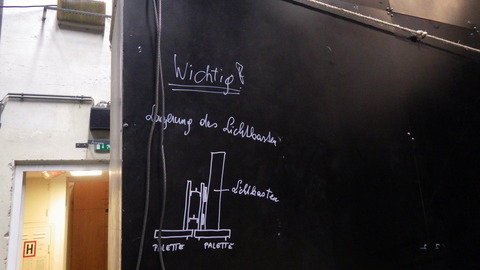 Wichtig!
Lagerung des Lichtkasten:
Lichtkasten
PALETTE PALETTE
H